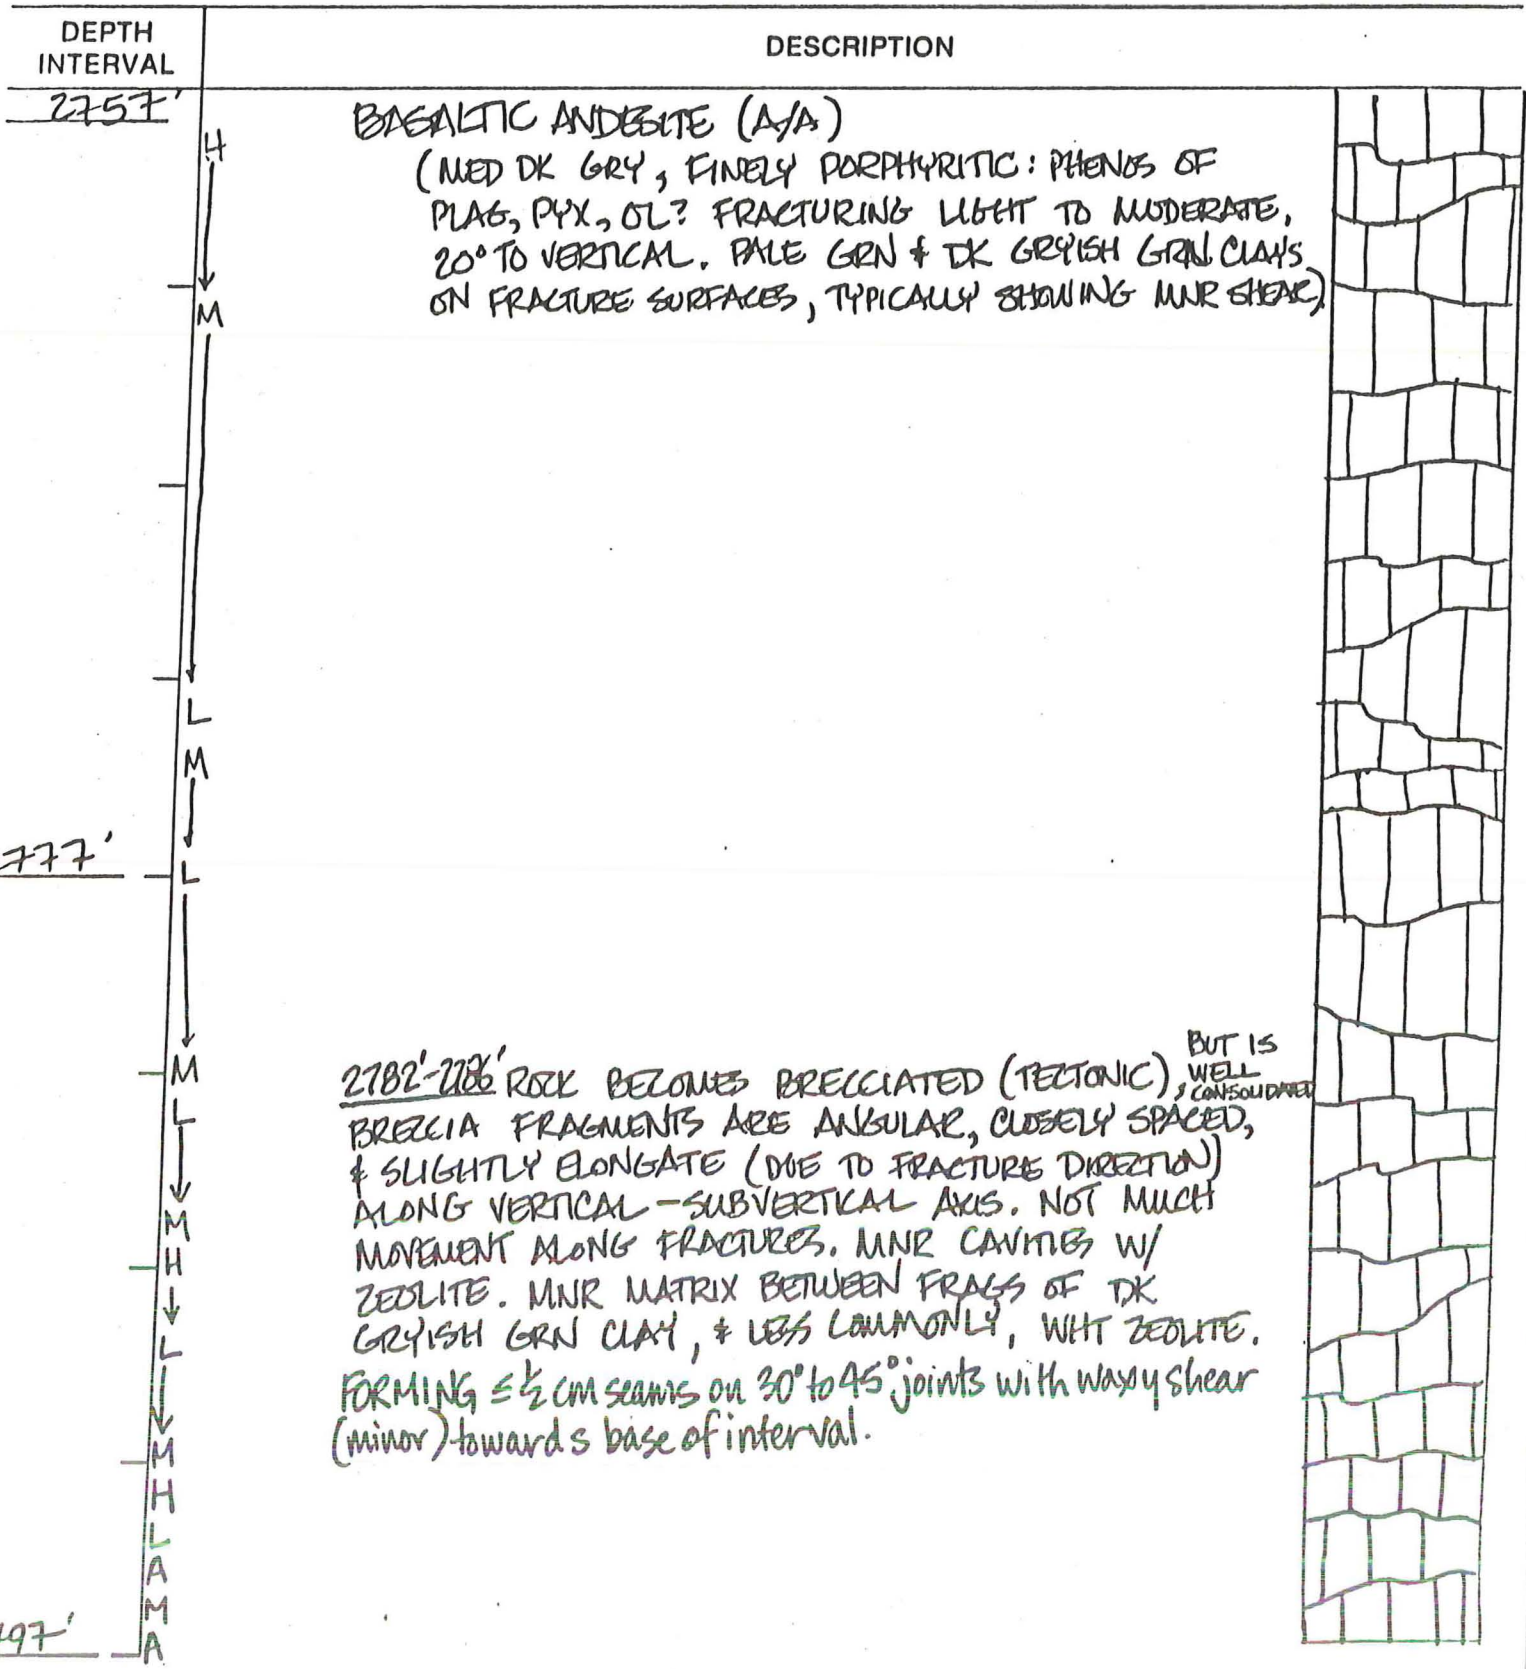 DEPTH
INTERVAL
DESCRIPTION
2757'
BASALTIC ANDESITE (A/A)
H
(MED DK GRY, FINELY PORPHYRITIC: PHENOS OF
PLAG, PYX, OL? FRACTURING LIGHT TO MODERATE,
20° TO VERTICAL. PALE GRN & DK GRYISH GRN CLAYS
ON FRACTURE SURFACES, TYPICALLY SHOWING MNR SHEAR)
M
L
M
777'
L
M
2782'-2786' ROCK BECOMES BRECCIATED (TECTONIC), BUT IS WELL CONSOLIDATED
L
BRECCIA FRAGMENTS ARE ANGULAR, CLOSELY SPACED,
& SLIGHTLY ELONGATE (DUE TO FRACTURE DIRECTION)
ALONG VERTICAL-SUBVERTICAL AXIS. NOT MUCH
M
MOVEMENT ALONG FRACTURES. MNR CAVITIES W/
H
ZEOLITE. MNR MATRIX BETWEEN FRAGS OF DK
GRYISH GRN CLAY, & LESS COMMONLY, WHT ZEOLITE.
L
FORMING ≤ ½ cm seams on 30° to 45° joints with waxy shear
(minor) towards base of interval.
M
H
L
A
M
97'
A